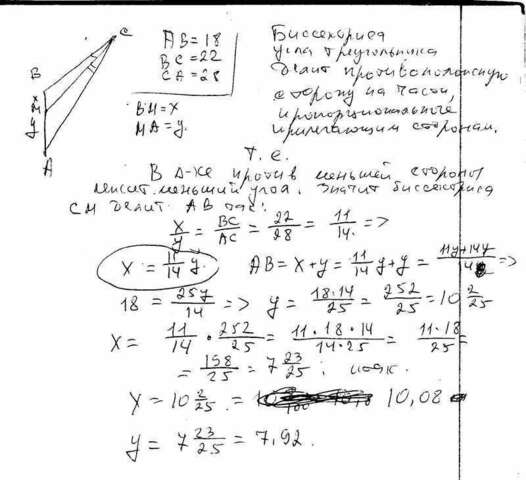 C
B
x
M
y
A
AB = 18
BC = 22
CA = 28
BM = x
MA = y.
Биссектриса
угла треугольника
делит противоположную
сторону на части,
пропорциональные
прилегающим сторонам.
Т.е.
В Δ-ке против меньшей стороны
лежит меньший угол. Значит биссектриса
CM делит AB так:
x/y = BC/AC = 22/28 = 11/14. =>
x = 11/14 y. AB = x + y = 11/14 y + y = (11y + 14y)/14 =>
18 = 25y/14 => y = (18·14)/25 = 252/25 = 10 2/25
x = 11/14 · 252/25 = (11·18·14)/(14·25) = (11·18)/25 =
= 198/25 = 7 23/25;
x = 10 2/25 = 10,08
y = 7 23/25 = 7,92.